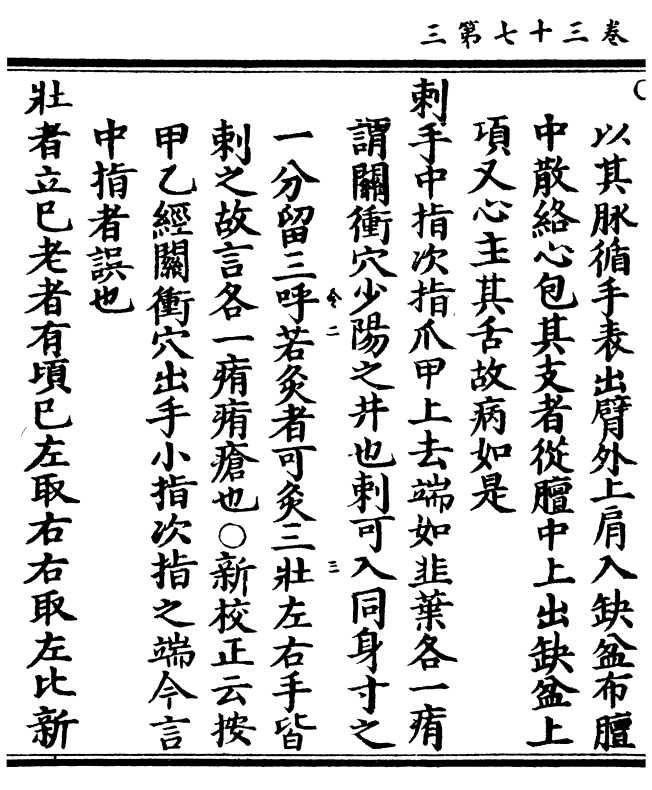 卷三十七第三
以其脉循手表出臂外上肩入缺盆布膻
中散絡心包其支者從膻中上出缺盆上
項又心主其舌故病如是
刺手中指次指爪甲上去端如韭葉各一痏
謂關衝穴少陽之井也刺可入同身寸之
二
三
一分留三呼若灸者可灸三壯左右手皆
刺之故言各一痏痏瘡也〇新校正云按
甲乙經關衝穴出手小指次指之端今言
中指者誤也
壯者立巳老者有頃巳左取右右取左比新